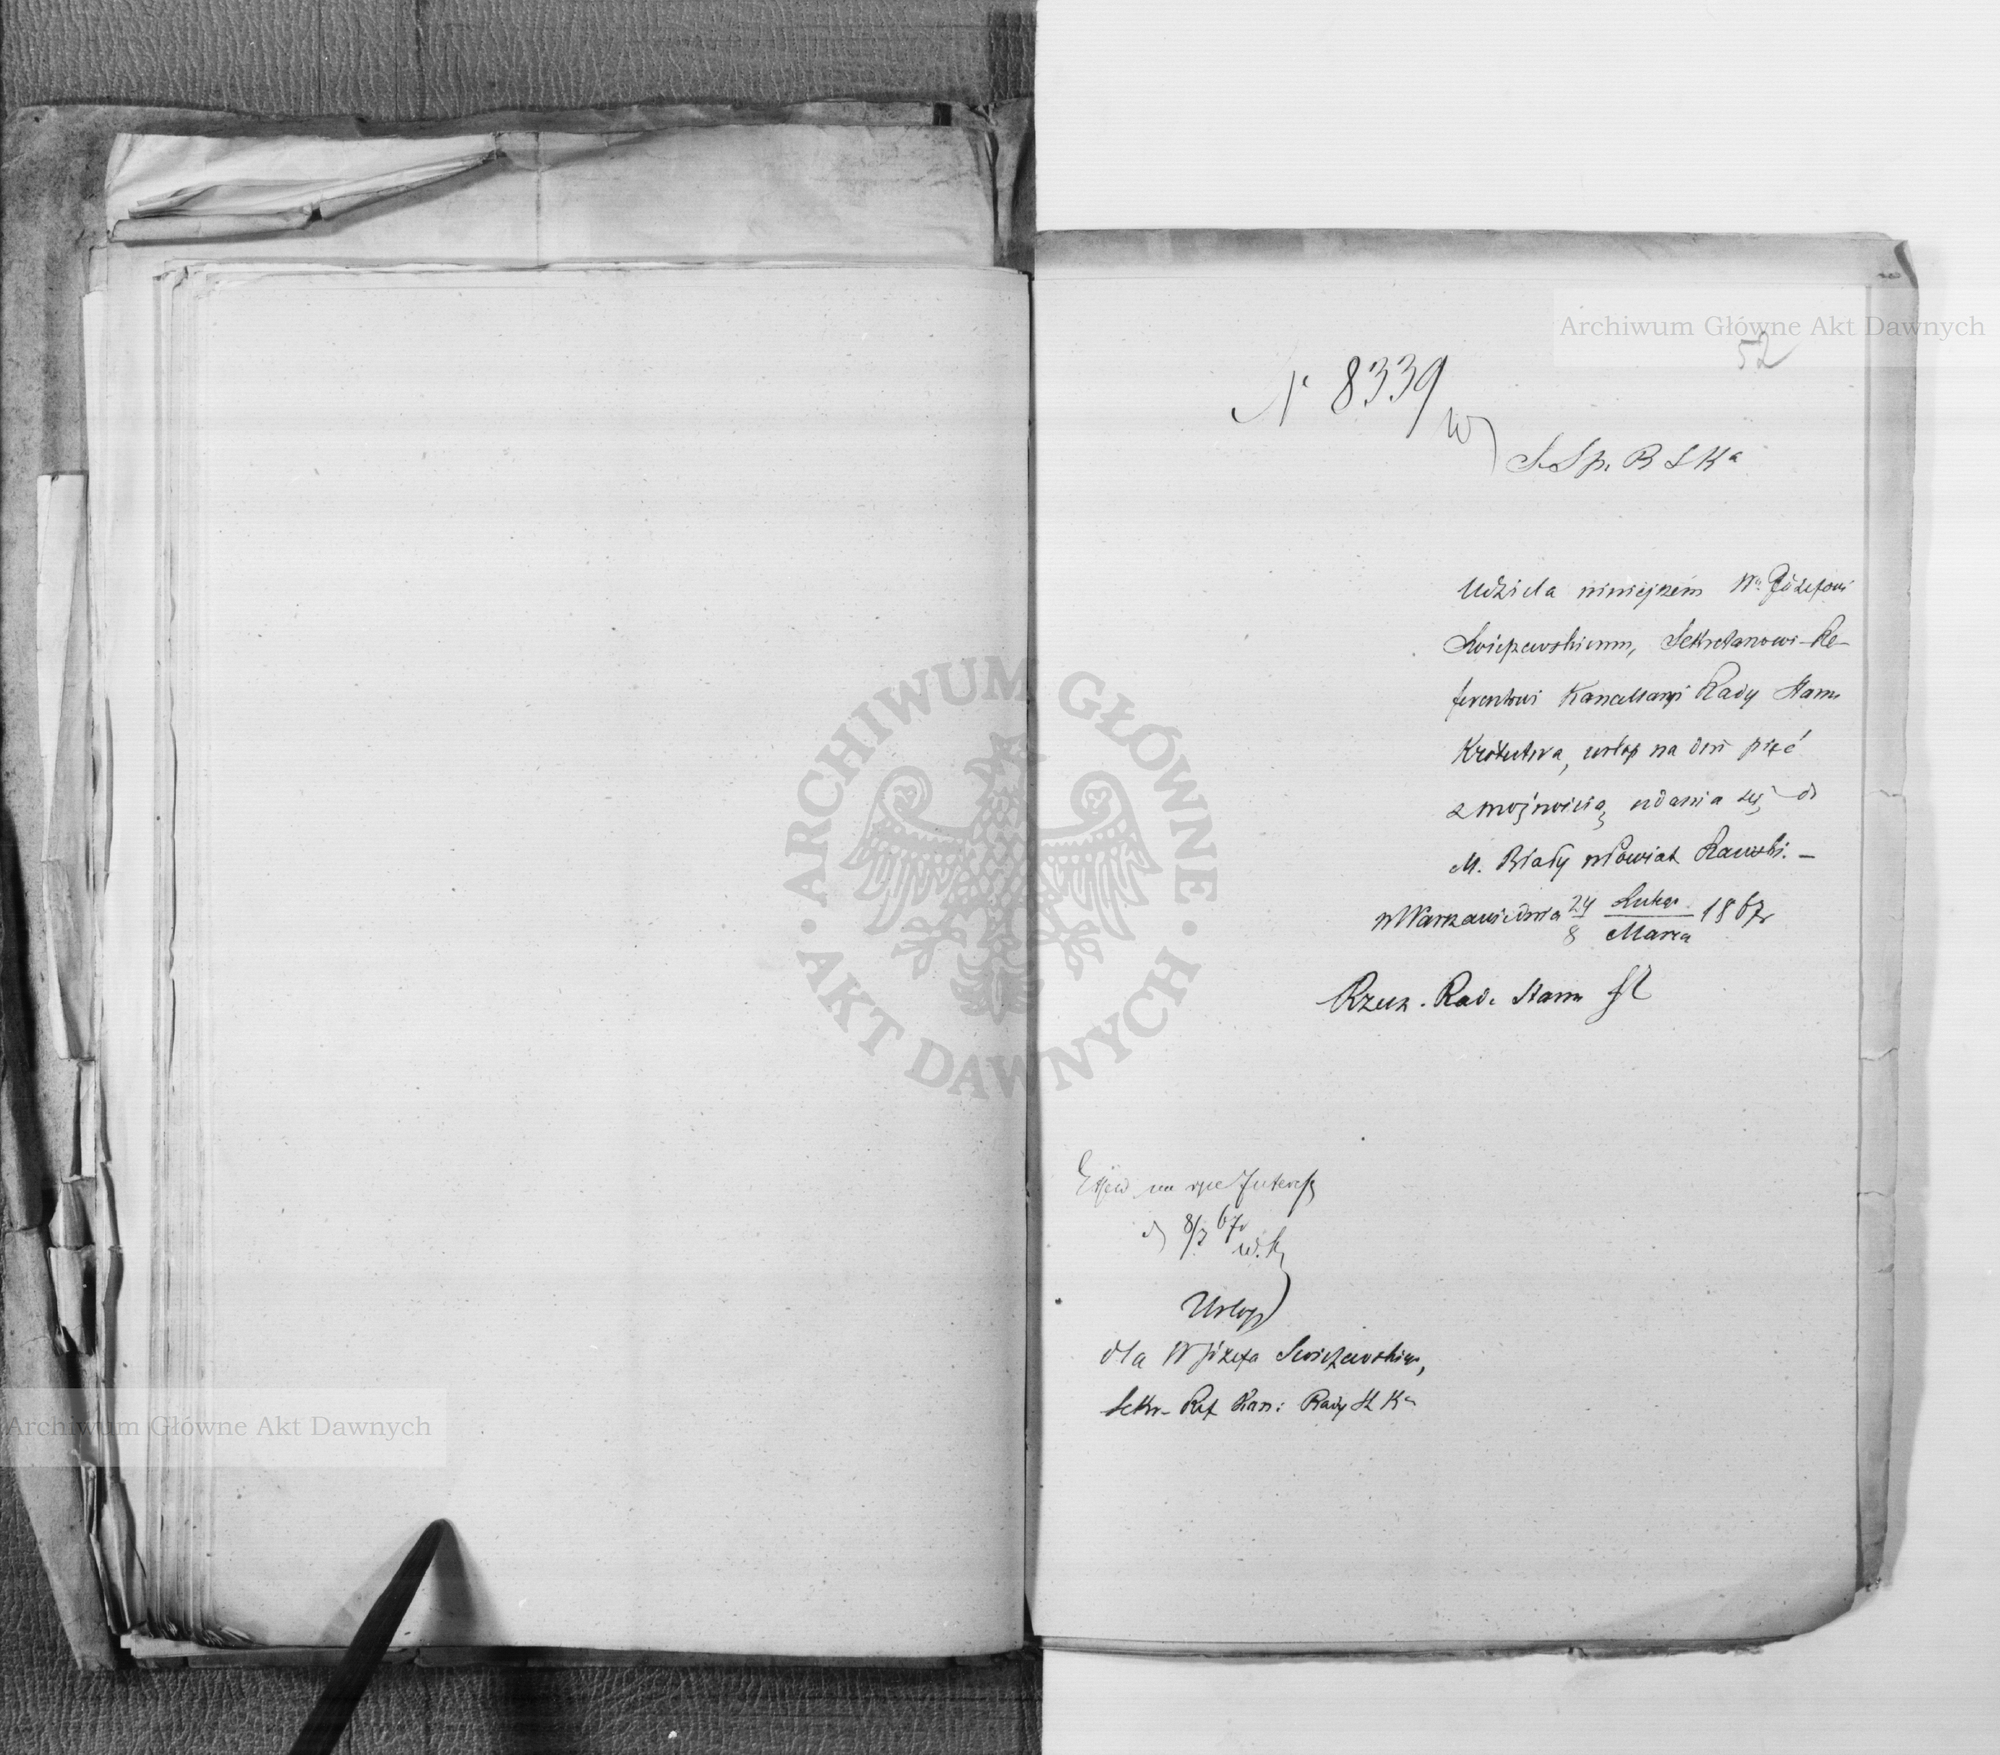 Archiwum Główne Akt Dawnych
52
N 8339
w
S. Sp. R S Kᵃ
Udziela niniejszem Wᵘ Józefowi
Swieżewskiemu, Sekretarzowi-Re-
ferentowi Kancellaryi Rady Stanu
Królestwa, urlop na dni pięć
z możnością udania się do
M. Biały w Powiat Rawski. –
w Warszawie dnia 24/8 Lutego/Marca 1867r
Rzecz. Rad. Stanu
8/3 67r
Urlop
dla W Józefa Swieżewskiego,
Sekr- Ref Kan: Rady St Kᵃ
ARCHIWUM GŁÓWNE
AKT DAWNYCH
Archiwum Główne Akt Dawnych